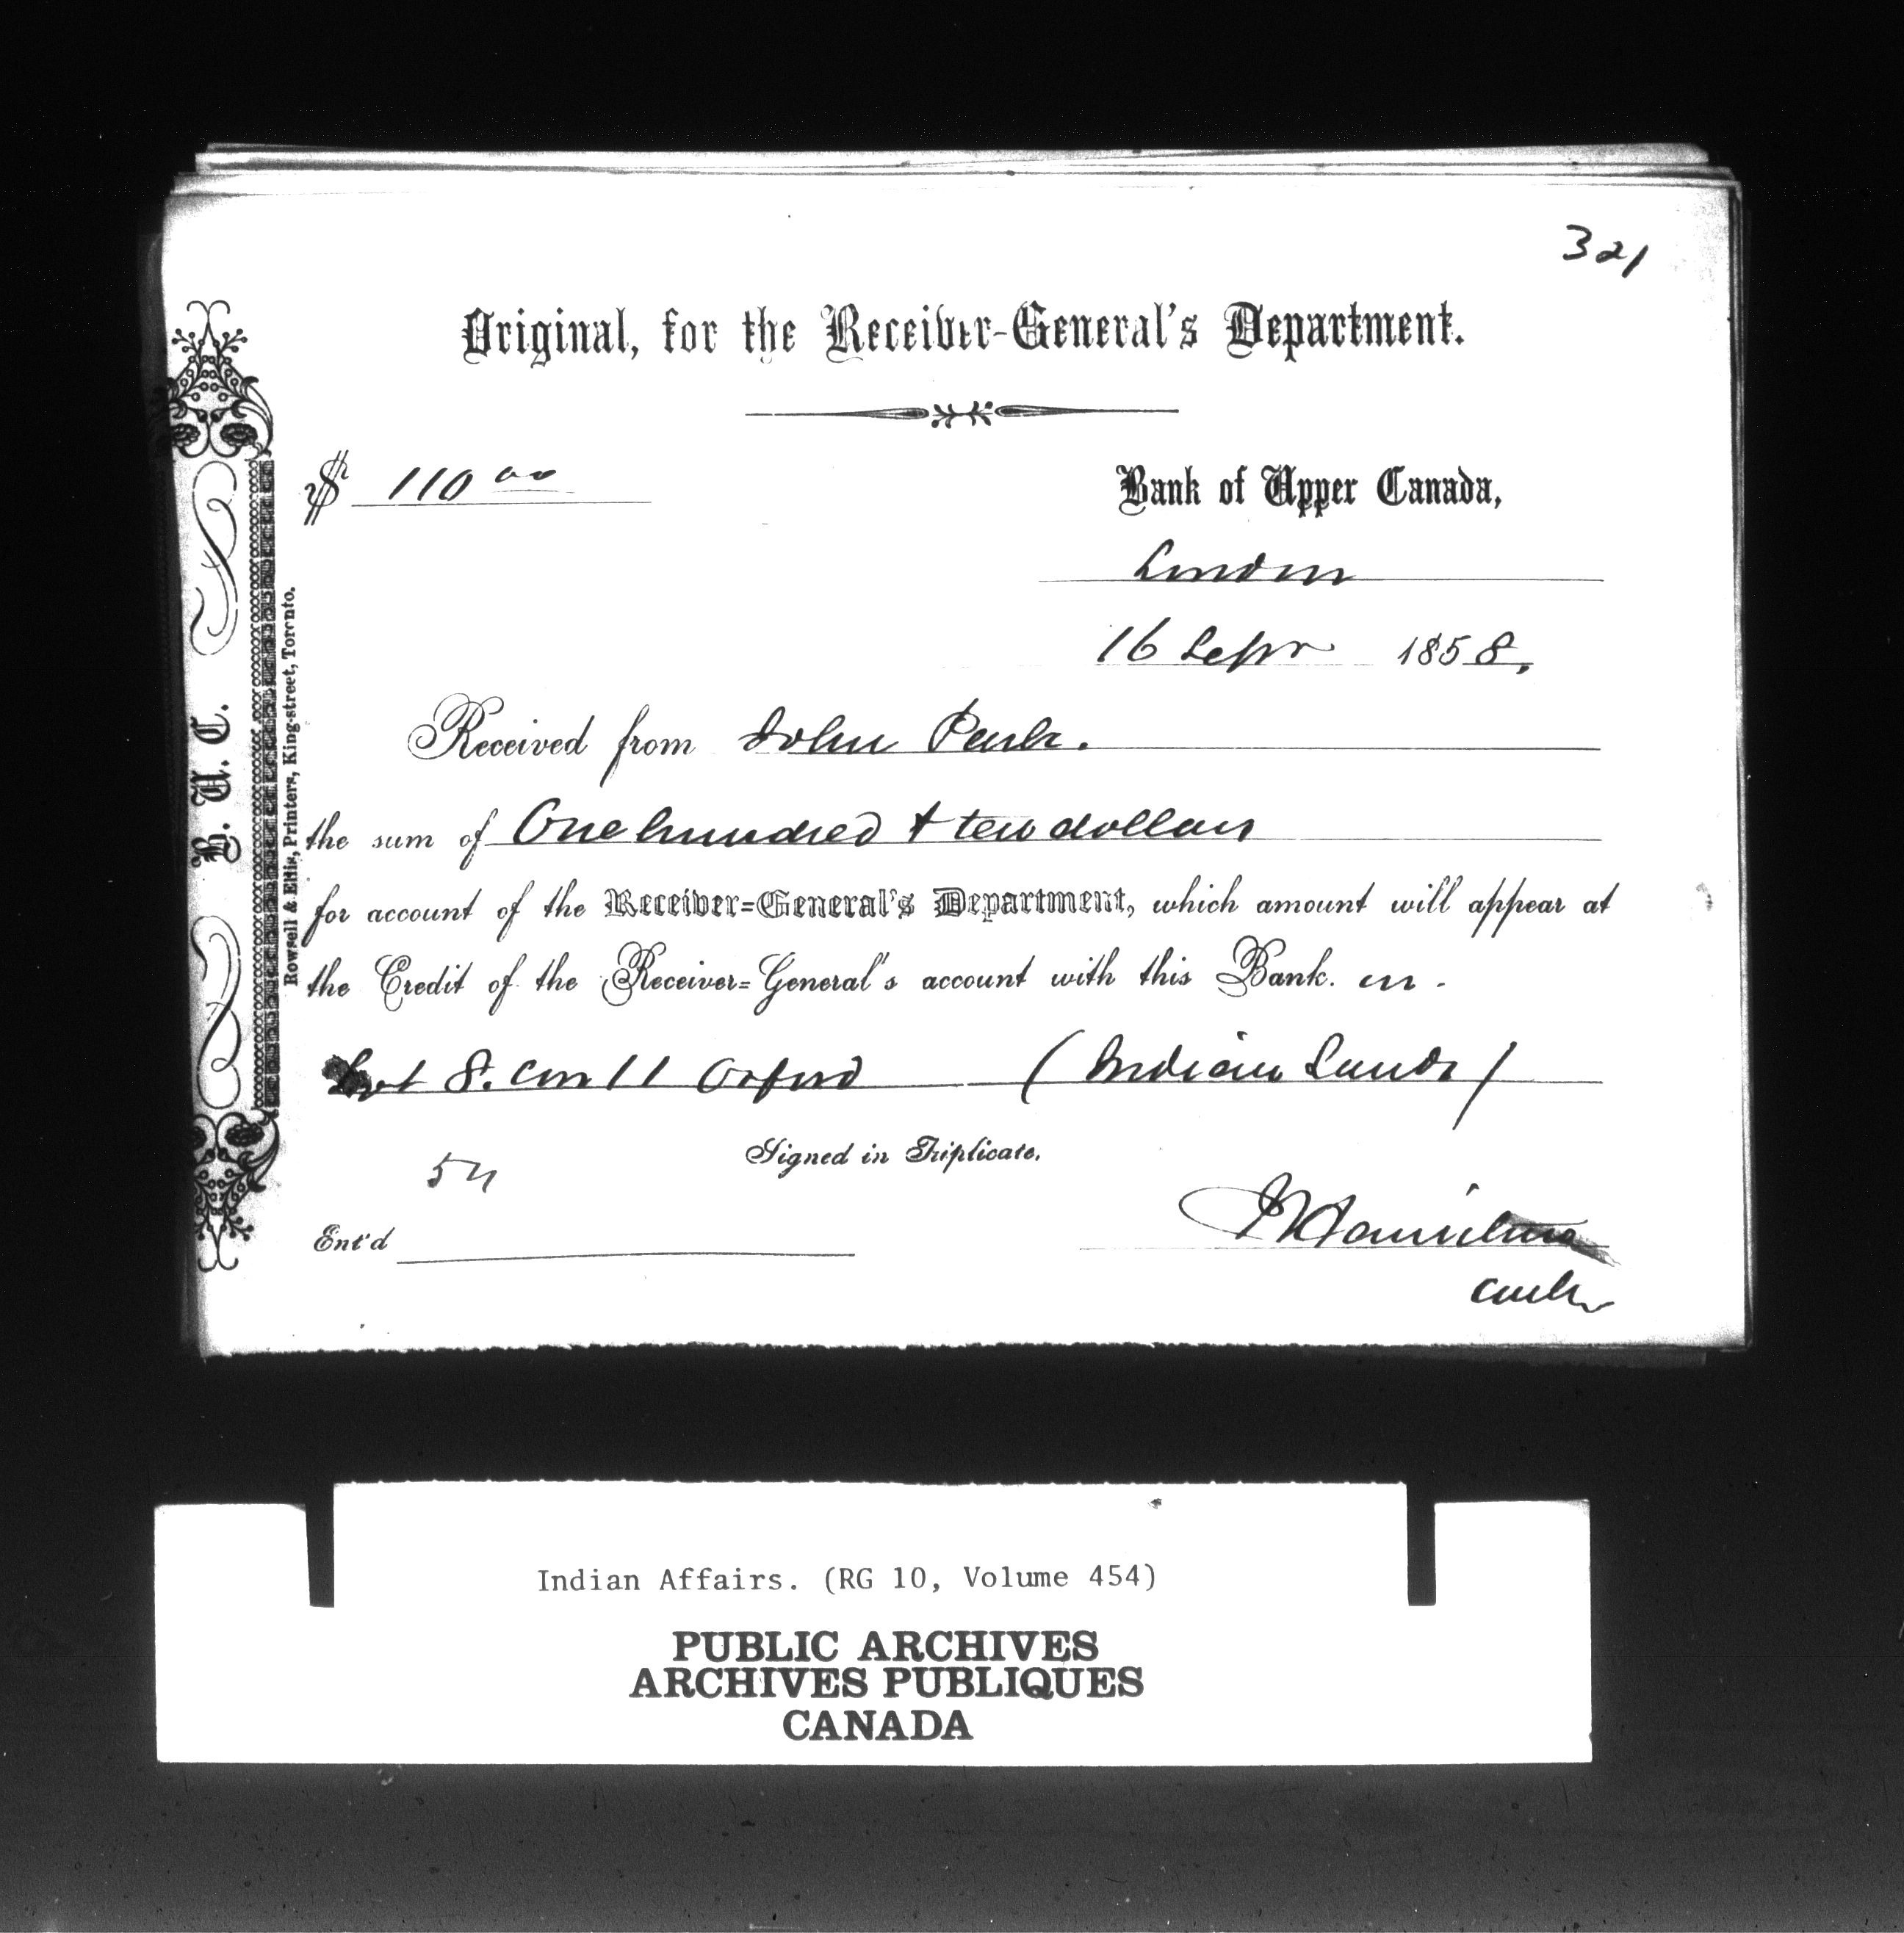 321
Original, for the Receiver-General's Department.
$ 110 00
Bank of Upper Canada,
London
16 Sepr 1858.
Received from John
the sum of One hundred & ten dollars
for account of the Receiver-General's Department, which amount will appear at
the Credit of the Receiver-General's account with this Bank. on
Lot 8. Con 11 Orford (Indian Lands)
Signed in Triplicate.
Ent'd
Hamilton
B. U. C.
Rowsell & Ellis, Printers, King-street, Toronto.
Indian Affairs. (RG 10, Volume 454)
PUBLIC ARCHIVES
ARCHIVES PUBLIQUES
CANADA